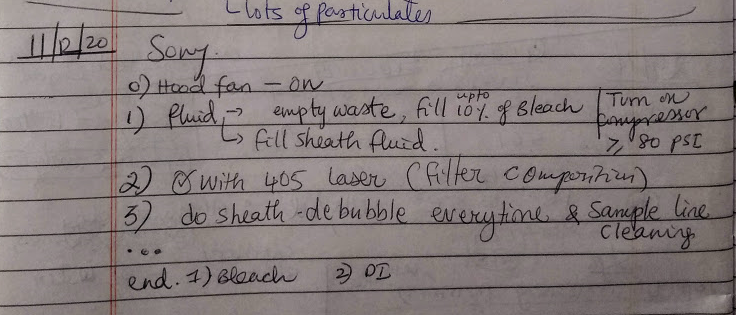 lots of particulates
11/12/20 Sony.
0) Hood fan - on
1) fluid → empty waste, fill upto 10% of Bleach | Turn on
↳ fill sheath fluid. compressor
≥ 80 PSI
2) with 405 laser (filter composition)
3) do sheath-debubble everytime & Sample line
cleaning
...
end. 1) Bleach 2) DI